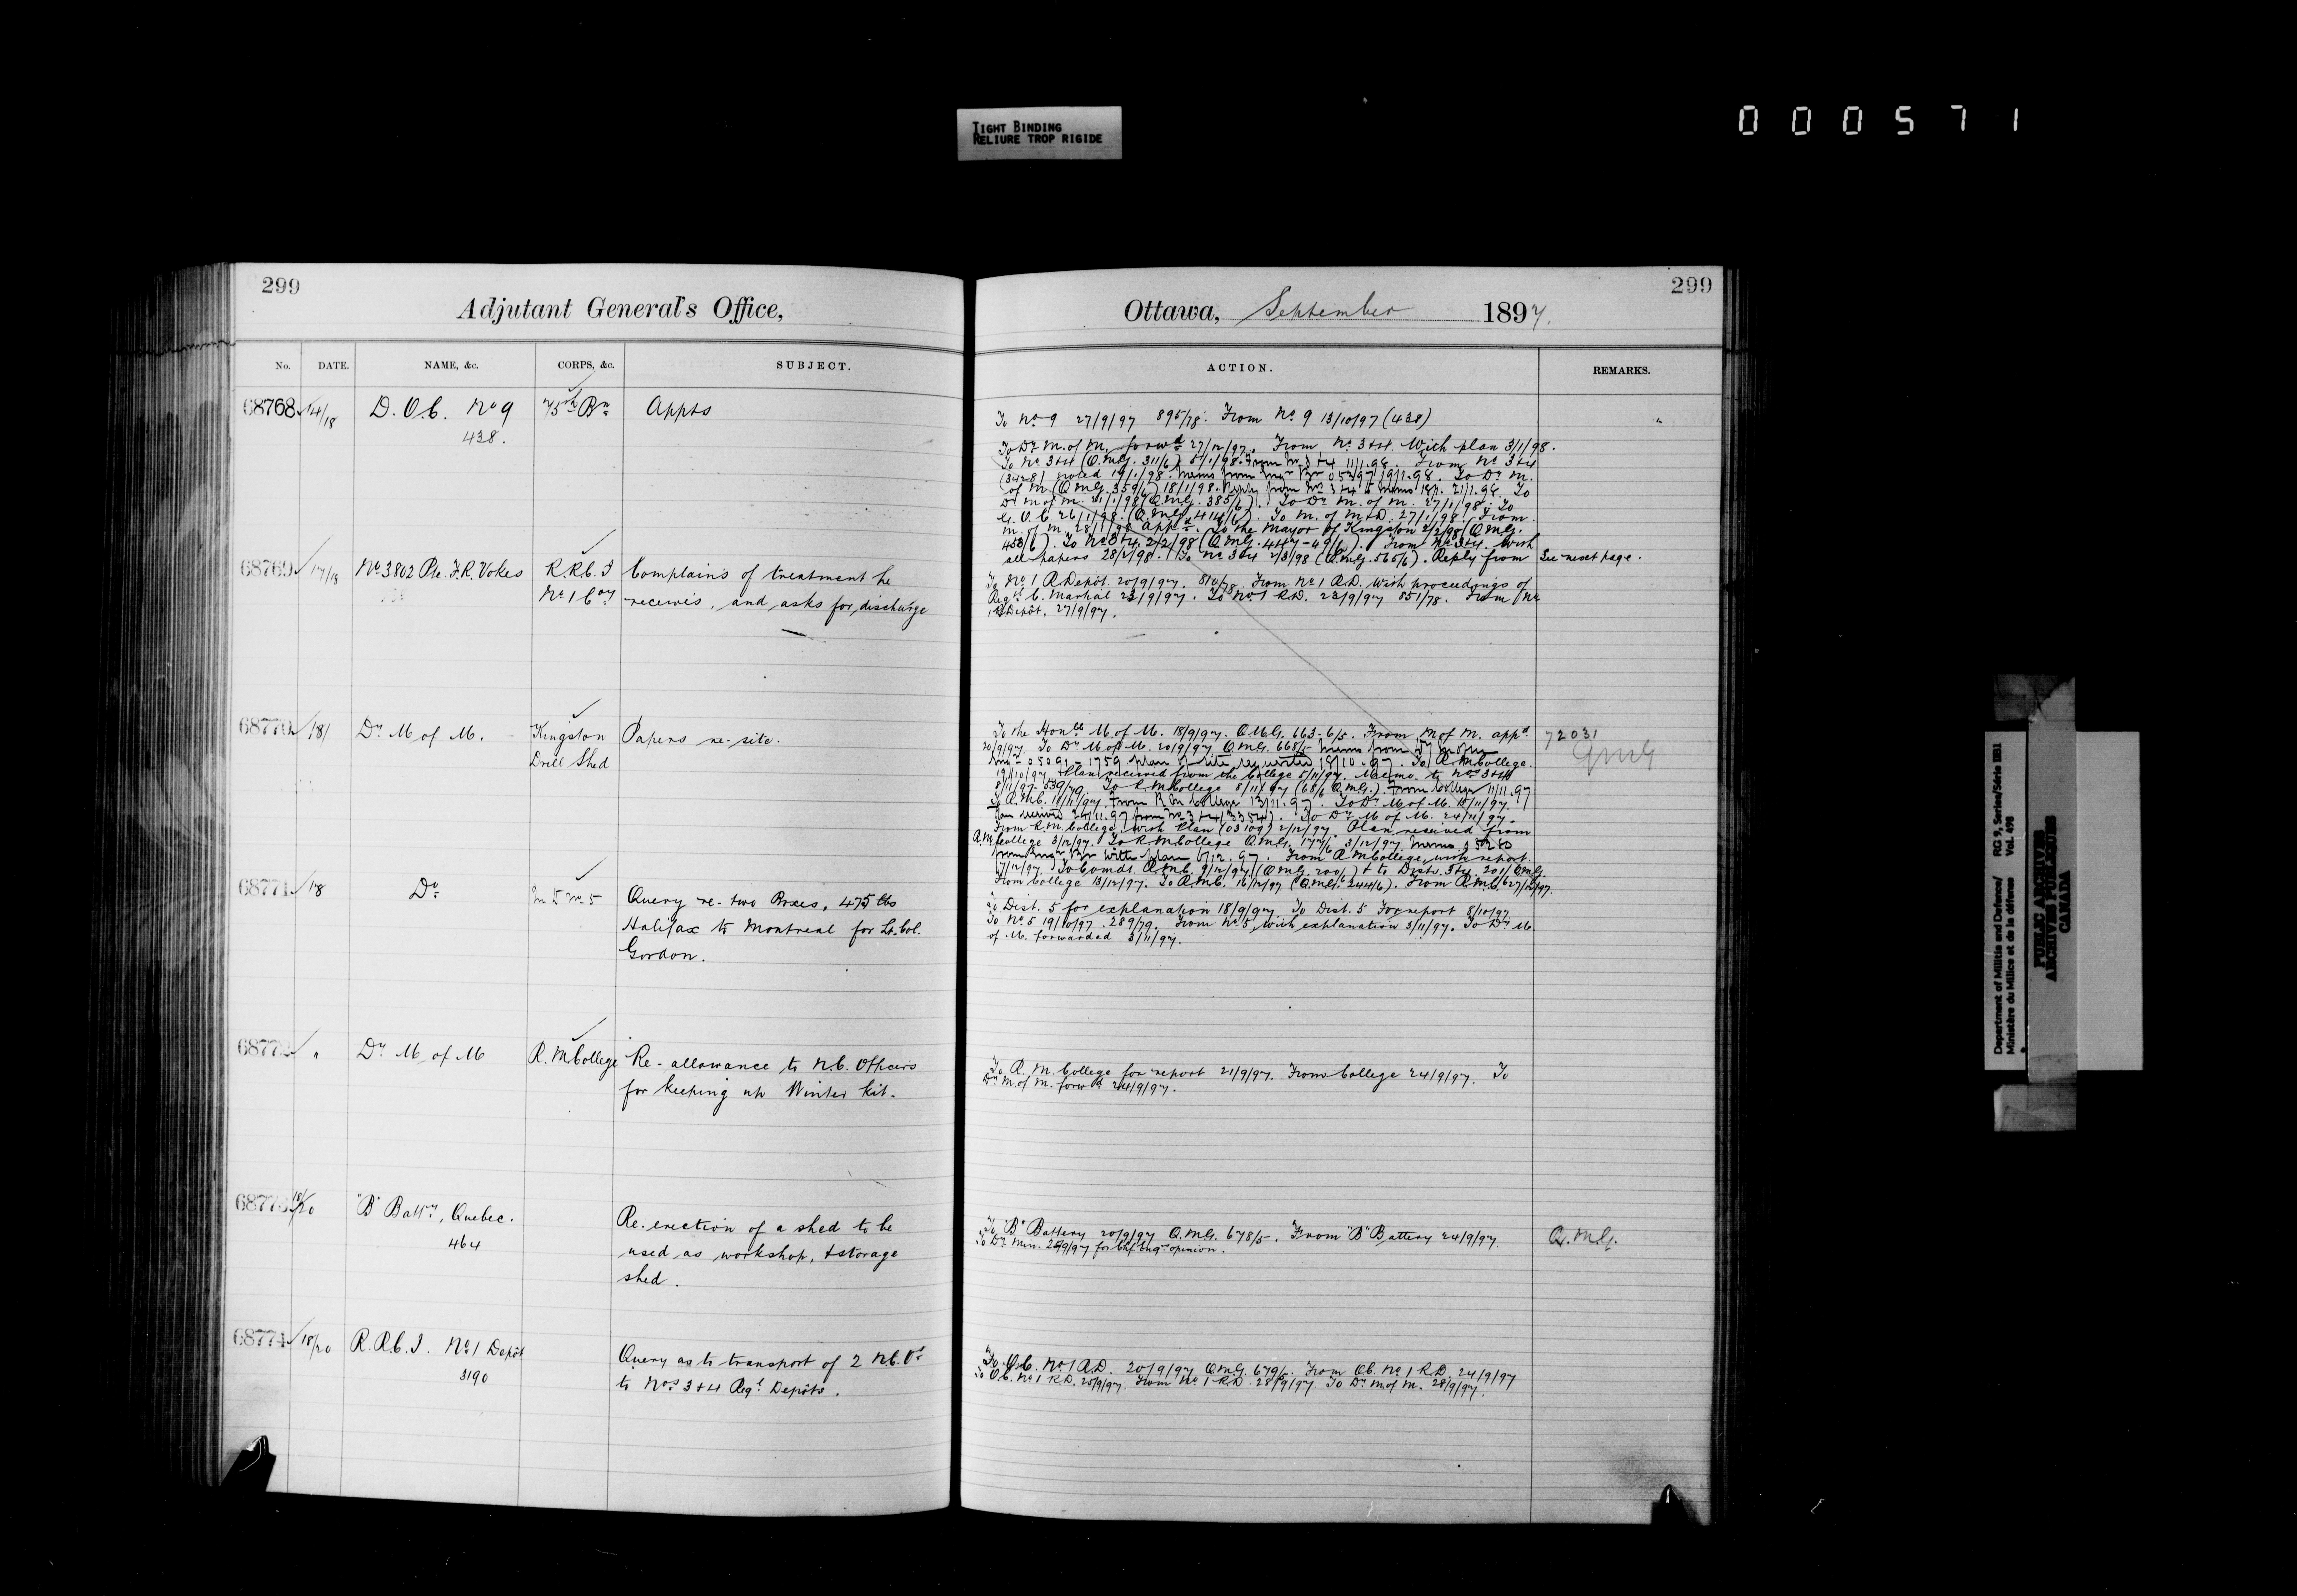 TIGHT BINDING
RELIURE TROP RIGIDE
000571
299
Adjutant General's Office,
No. DATE. NAME, &c. CORPS, &c. SUBJECT.
68768 14/18 D.O.C. No 9 75th Bn Appts
438.
68769 17/18 No 3802 Pte. F.R. Vokes R.R.C.I Complains of treatment he
No 1 Coy receives, and asks for discharge
68770 18/ Dy M of M. Kingston Papers re-site.
Drill Shed
68771 18 Do M D No 5 Query re- two Boxes, 475 lbs
Halifax to Montreal for Lt. Col.
Gordon.
68772 " Dy M of M R.M College Re-allowance to N.C. Officers
for keeping up Winter Kit.
68773 18/20 "B" Batty, Quebec. Re-erection of a shed to be
464 used as workshop, + storage
shed.
68774 18/20 R.R.C.I. No 1 Depôt Query as to transport of 2 N.C.Os
3190 to Nos 3+4 Regt Depôts.
299
Ottawa, September 1897.
ACTION. REMARKS.
To No 9 27/9/97 895/78. From No 9 13/10/97 (438)
To Dy M. of M. forwd 27/12/97. From No 3+4 With plan 3/1/98.
To No 3+4 (Q.M.G. 311/6) 5/1/98. From No 3+4 11/1.98. From No 3+4
(3428) noted 19/1/98. To Dy M.
of M. (Q.M.G. 359/6) 18/1/98. To
Dy M of M. 21/1/98 (Q.M.G. 385/6). To Dy M. of M. 27/1/98. To
G.O.C. 26/1/98. (Q.M.G. 414/6). To M. of M+D. 27/1/98. From
M. of M. 28/1/98 Appd. To the Mayor of Kingston 2/2/98 (Q.M.G.
458/6). To No 3+4 2/2/98 (Q.M.G. 447-49/6). From No 3+4. With
all papers 28/2/98. To No 3+4 2/3/98 (Q.M.G. 565/6). Reply from See next page.
To No 1 R. Depôt. 20/9/97. 810/78. From No 1 R.D. with proceedings of
Regtl C. Martial 23/9/97. To No 1 R.D. 23/9/97 851/78. From No
1 R Depôt. 27/9/97.
To the Honble M. of M. 18/9/97. Q.M.G. 663-6/5. From M of M. appd 72031
20/9/97. To Dy M of M. 20/9/97 Q.M.G. 668/5 QMG
plan of site requested 18/10.97. To R.M College.
19/10/97. Plan received from the College 5/11/97. Memo. to Nos 3+4
8/11/97. 539/79. To R M College 8/11/97 (68/6 Q.M.G.). From College 11/11.97
To R.M.C. 11/11/97. From R M College 13/11.97. To Dy M of M. 15/11/97.
received 24/11.97 from No 3+4 (3354). To Dy M of M. 24/11/97.
From R.M. College with Plan (03109) 2/12/97. Plan received from
R.M. College 3/12/97. To R M College Q.M.G. 177/6 3/12/97. Memo
with plan 6/12.97. From R M College, with report.
7/12/97. To Comdt. R.M.C. 9/12/97 (Q.M.G. 200/6) + to Dists. 3+4. 201/6 Q.M.G.
From College 13/12/97. To R.M.C. 16/12/97 (Q.M.G. 244/6). From R.M.C. 27/12/97.
To Dist. 5 for explanation 18/9/97. To Dist. 5 For report 8/10/97
To No 5 19/10/97. 289/79. From No 5, With explanation 3/11/97. To Dy M
of M. forwarded 3/11/97.
To R. M. College for report 21/9/97. From College 24/9/97. To
Dy M. of M. forwd 24/9/97.
To "B" Battery 20/9/97 Q.M.G. 678/5. From "B" Battery 24/9/97 Q.M.G.
To Dy Min. 25/9/97 for Chf. Engrs opinion.
To O.C. No 1 R.D. 20/9/97 Q.M.G. 679/5. From O.C. No 1 R.D. 24/9/97
To O.C. No 1 R.D. 25/9/97. From No 1 R.D. 28/9/97 To Dy M. of M. 28/9/97.
Department of Militia and Defence/ RG 9, Series/Série IIB1
Ministère du Milice et de la défense Vol. 498
PUBLIC ARCHIVES
ARCHIVES PUBLIQUES
CANADA